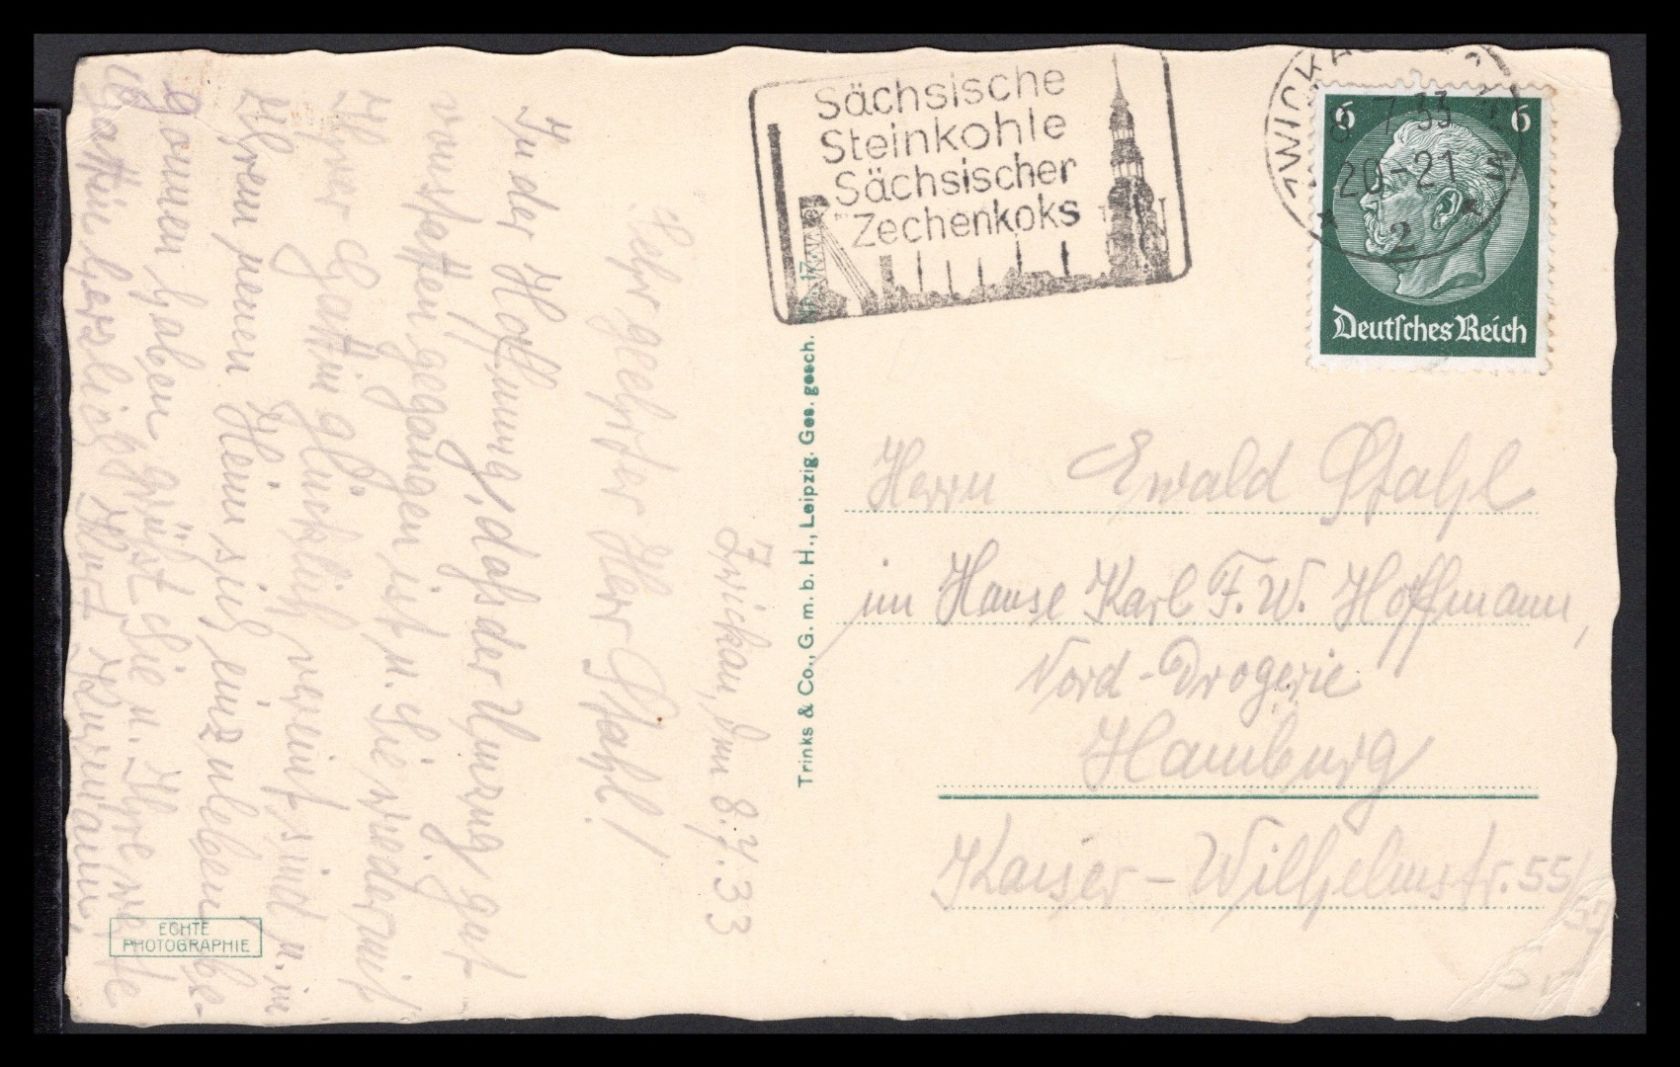 Zwickau, den 8.7.33
Sehr geehrter Herr Stahl!
In der Hoffnung, dass der Umzug gut
vonstatten gegangen ist u. Sie wieder mit
Ihrer Gattin glücklich vereint sind u. in
Ihrem neuen Heim sich einzuleben be-
gonnen haben, grüßt Sie u. Ihre werte
Gattin herzlich Kurt
Sächsische
Steinkohle
Sächsischer
Zechenkoks
ZWICKAU
7 33
20-21
2
6 6
Deutsches Reich
Trinks & Co., G. m. b. H., Leipzig. Ges. gesch.
Herrn Ewald Stahl
im Hause Karl F. W. Hoffmann,
Nord-Drogerie
Hamburg
Kaiser-Wilhelmstr. 55/
57
ECHTE
PHOTOGRAPHIE